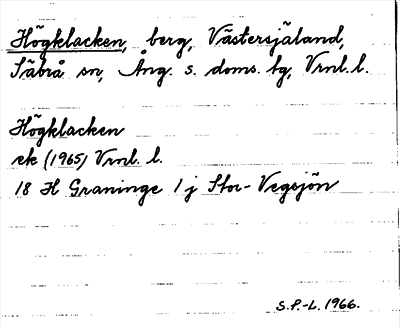 Högklacken, berg, Västersjäland,
Säbrå sn, Ång. s. doms. tg, Vrnl. l.
Högklacken
ek (1965) Vrnl. l.
18 H Graninge 1 j Stor-Vegsjön
S.P.-L. 1966.